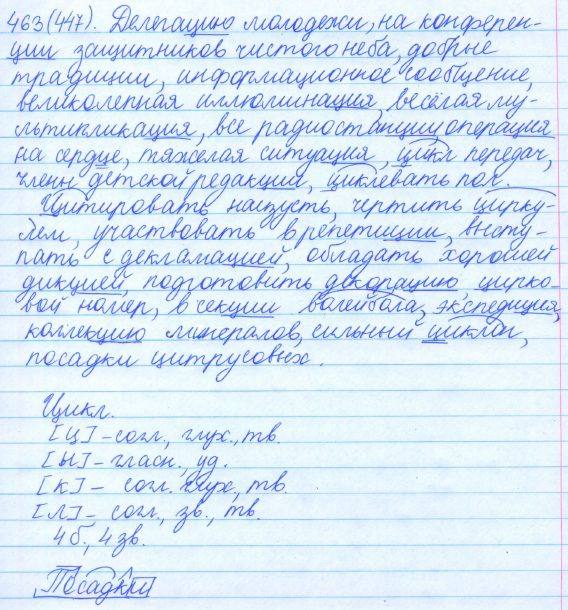 463(447). Делегацию молодежи, на конферен-
ции защитников чистого неба, добрые
традиции, информационное сообщение,
великолепная иллюминация, весёлая му-
льтипликация, все радиостанции операция
на сердце, тяжелая ситуация, цикл передач,
члены детской редакции, циклевать пол.
Цитировать наизусть, чертить цирку-
лем, участвовать в репетиции, высту-
пать с декламацией, обладать хорошей
дикцией, подготовить декорацию цирко-
вой номер, в секции волейбола, экспедиция,
коллекцию минералов, сильный циклон,
посадки цитрусовых.
Цикл.
[Ц] – согл., глух., тв.
[Ы] – гласн., уд.
[К] – согл. глух., тв.
[Л] – согл., зв., тв.
4 б., 4 зв.
Посадки